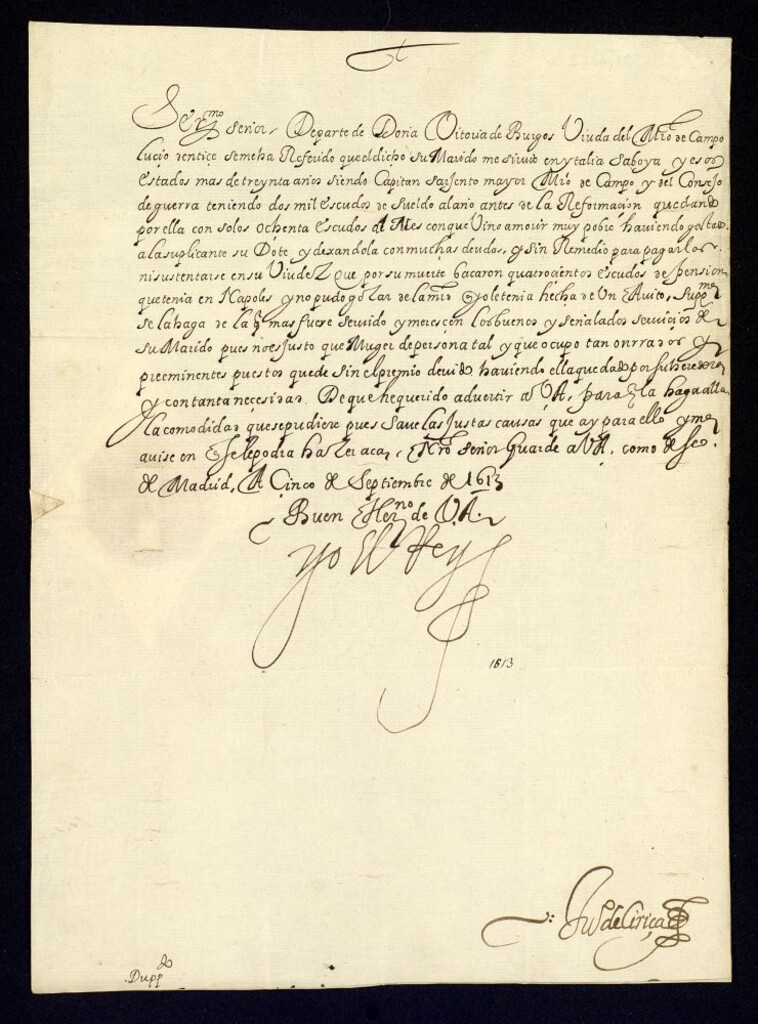 Ser.mo señor, De parte de Doña Vitoria de Burgos Viuda del M.ro de Campo
Lucio dentice se me ha Referido que el dicho su Marido me siruio en ytalia Saboya y esos
estados mas de treynta años siendo Capitan sarjento mayor M.ro de Campo y del Consejo
de guerra teniendo dos mil escudos de sueldo al año antes de la Reformaçion quedando
por ella con solos ochenta escudos al Mes con que Vino a morir muy pobre hauiendo gastado
a la suplicante su Dote y dexandola con muchas deudas, y sin Remedio para pagarlas
ni sustentarse en su Viudez que por su muerte bacaron quatrocientos escudos de pension
que tenia en Napoles y no pudo gozar de la mrd q yo le tenia hecha de Un Auito, supp.ma
se la haga de la q mas fuere seruido y merescen los buenos y señalados seruicios de
su Marido pues no es justo que Muger de persona tal y que ocupo tan onrrados y
preeminentes puestos quede sin el premio deuido hauiendo ella quedado por su heredera
y con tanta necesidad. De que he querido aduertir a V.A. para q la haga alla
la comodidad que se pudiere pues saue las justas causas que ay para ello y me
auise en q se le podra hazer aca, Nro señor guarde a V.A. como desseo.
de Madrid, A Cinco de Septiembre de 1613
Buen Her.no de V.A.
yo el Rey
1613
Ju.o de Ciriça
Dupp.do